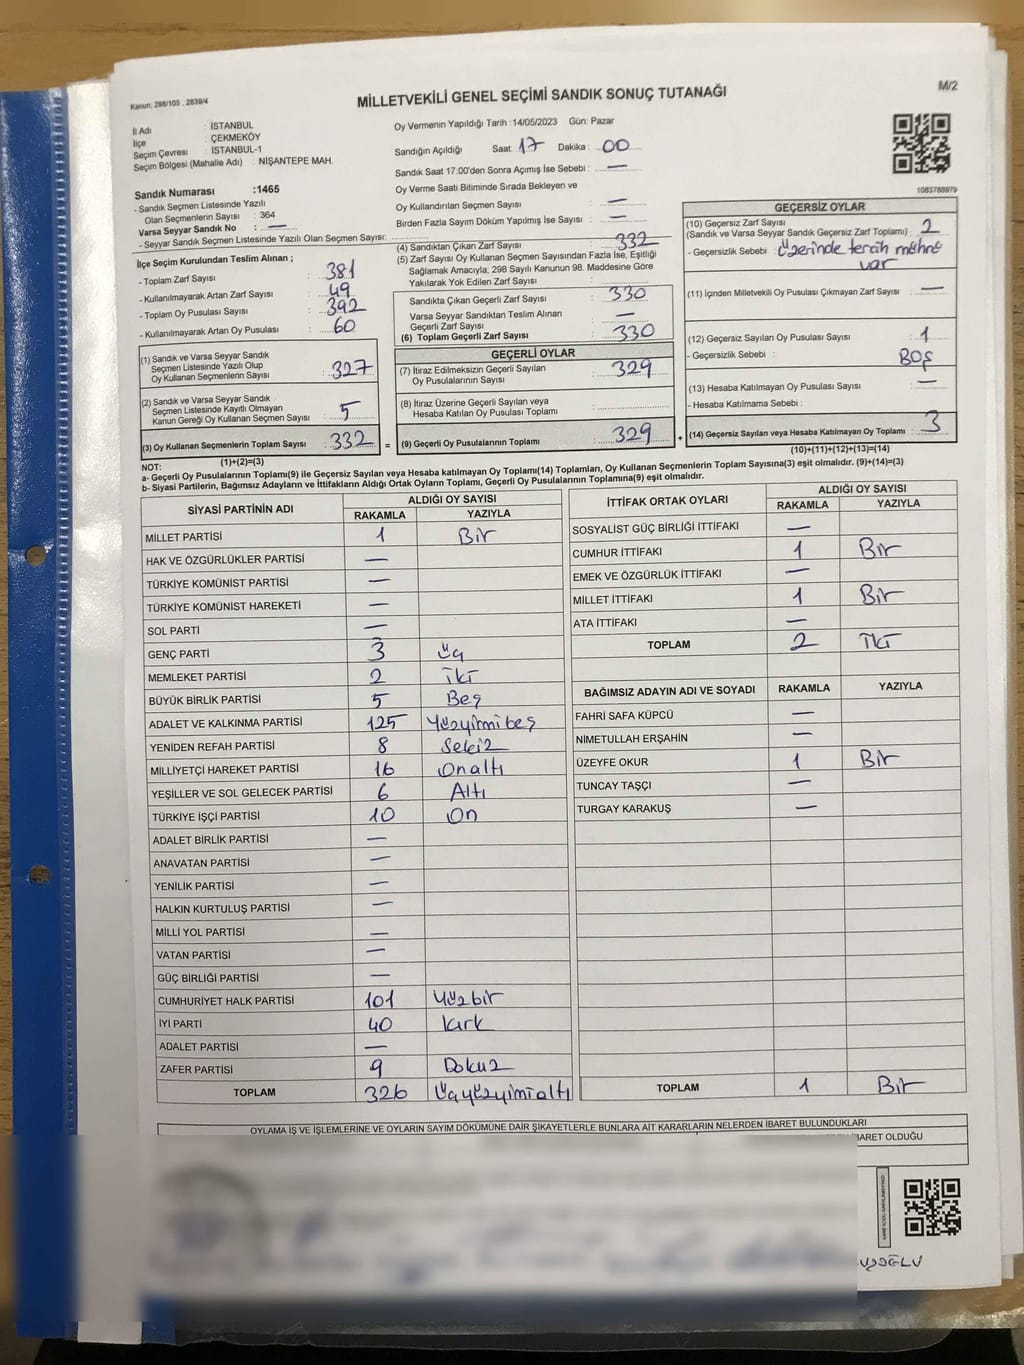 Kanun; 298/105 , 2839/4
MİLLETVEKİLİ GENEL SEÇİMİ SANDIK SONUÇ TUTANAĞI
M/2
İl Adı : İSTANBUL
İlçe : ÇEKMEKÖY
Seçim Çevresi : İSTANBUL-1
Seçim Bölgesi (Mahalle Adı) : NİŞANTEPE MAH.
Sandık Numarası :1465
- Sandık Seçmen Listesinde Yazılı
Olan Seçmenlerin Sayısı : 364
Varsa Seyyar Sandık No : —
- Seyyar Sandık Seçmen Listesinde Yazılı Olan Seçmen Sayısı:
Oy Vermenin Yapıldığı Tarih :14/05/2023 Gün: Pazar
Sandığın Açıldığı Saat: 17 Dakika : 00
Sandık Saat 17:00'den Sonra Açımış İse Sebebi : —
Oy Verme Saati Bitiminde Sırada Bekleyen ve
Oy Kullandırılan Seçmen Sayısı : —
Birden Fazla Sayım Döküm Yapılmış İse Sayısı : —
1083788979
İlçe Seçim Kurulundan Teslim Alınan ;
- Toplam Zarf Sayısı : 381
- Kullanılmayarak Artan Zarf Sayısı : 49
- Toplam Oy Pusulası Sayısı : 392
- Kullanılmayarak Artan Oy Pusulası : 60
(1) Sandık ve Varsa Seyyar Sandık
Seçmen Listesinde Yazılı Olup
Oy Kullanan Seçmenlerin Sayısı : 327
(2) Sandık ve Varsa Seyyar Sandık
Seçmen Listesinde Kayıtlı Olmayan
Kanun Gereği Oy Kullanan Seçmen Sayısı : 5
(3) Oy Kullanan Seçmenlerin Toplam Sayısı : 332
(1)+(2)=(3)
(4) Sandıktan Çıkan Zarf Sayısı : 332
(5) Zarf Sayısı Oy Kullanan Seçmen Sayısından Fazla İse, Eşitliği
Sağlamak Amacıyla; 298 Sayılı Kanunun 98. Maddesine Göre
Yakılarak Yok Edilen Zarf Sayısı :
Sandıkta Çıkan Geçerli Zarf Sayısı : 330
Varsa Seyyar Sandıktan Teslim Alınan
Geçerli Zarf Sayısı : —
(6) Toplam Geçerli Zarf Sayısı : 330
GEÇERLİ OYLAR
(7) İtiraz Edilmeksizin Geçerli Sayılan
Oy Pusulalarının Sayısı : 329
(8) İtiraz Üzerine Geçerli Sayılan veya
Hesaba Katılan Oy Pusulası Toplamı :
= (9) Geçerli Oy Pusulalarının Toplamı : 329 +
GEÇERSİZ OYLAR
(10) Geçersiz Zarf Sayısı
(Sandık ve Varsa Seyyar Sandık Geçersiz Zarf Toplamı) : 2
- Geçersizlik Sebebi : Üzerinde tercih mührü
var
(11) İçinden Milletvekili Oy Pusulası Çıkmayan Zarf Sayısı : —
(12) Geçersiz Sayılan Oy Pusulası Sayısı : 1
- Geçersizlik Sebebi : Boş
(13) Hesaba Katılmayan Oy Pusulası Sayısı : —
- Hesaba Katılmama Sebebi :
(14) Geçersiz Sayılan veya Hesaba Katılmayan Oy Toplamı : 3
(10)+(11)+(12)+(13)=(14)
NOT:
a- Geçerli Oy Pusulalarının Toplamı(9) ile Geçersiz Sayılan veya Hesaba katılmayan Oy Toplamı(14) Toplamları, Oy Kullanan Seçmenlerin Toplam Sayısına(3) eşit olmalıdır. (9)+(14)=(3)
b- Siyasi Partilerin, Bağımsız Adayların ve İttifakların Aldığı Ortak Oyların Toplamı, Geçerli Oy Pusulalarının Toplamına(9) eşit olmalıdır.
SİYASİ PARTİNİN ADI ALDIĞI OY SAYISI
RAKAMLA YAZIYLA
MİLLET PARTİSİ 1 Bir
HAK VE ÖZGÜRLÜKLER PARTİSİ —
TÜRKİYE KOMÜNİST PARTİSİ —
TÜRKİYE KOMÜNİST HAREKETİ —
SOL PARTİ —
GENÇ PARTİ 3 Üç
MEMLEKET PARTİSİ 2 İki
BÜYÜK BİRLİK PARTİSİ 5 Beş
ADALET VE KALKINMA PARTİSİ 125 Yüzyirmibeş
YENİDEN REFAH PARTİSİ 8 Sekiz
MİLLİYETÇİ HAREKET PARTİSİ 16 Onaltı
YEŞİLLER VE SOL GELECEK PARTİSİ 6 Altı
TÜRKİYE İŞÇİ PARTİSİ 10 On
ADALET BİRLİK PARTİSİ —
ANAVATAN PARTİSİ —
YENİLİK PARTİSİ —
HALKIN KURTULUŞ PARTİSİ —
MİLLİ YOL PARTİSİ —
VATAN PARTİSİ —
GÜÇ BİRLİĞİ PARTİSİ —
CUMHURİYET HALK PARTİSİ 101 Yüzbir
İYİ PARTİ 40 Kırk
ADALET PARTİSİ —
ZAFER PARTİSİ 9 Dokuz
TOPLAM 326 Üçyüzyirmialtı
İTTİFAK ORTAK OYLARI ALDIĞI OY SAYISI
RAKAMLA YAZIYLA
SOSYALİST GÜÇ BİRLİĞİ İTTİFAKI —
CUMHUR İTTİFAKI 1 Bir
EMEK VE ÖZGÜRLÜK İTTİFAKI —
MİLLET İTTİFAKI 1 Bir
ATA İTTİFAKI —
TOPLAM 2 İki
BAĞIMSIZ ADAYIN ADI VE SOYADI RAKAMLA YAZIYLA
FAHRİ SAFA KÜPCÜ —
NİMETULLAH ERŞAHİN —
ÜZEYFE OKUR 1 Bir
TUNCAY TAŞÇI —
TURGAY KARAKUŞ —
TOPLAM 1 Bir
OYLAMA İŞ VE İŞLEMLERİNE VE OYLARIN SAYIM DÖKÜMÜNE DAİR ŞİKAYETLERLE BUNLARA AİT KARARLARIN NELERDEN İBARET BULUNDUKLARI
İBARET OLDUĞU